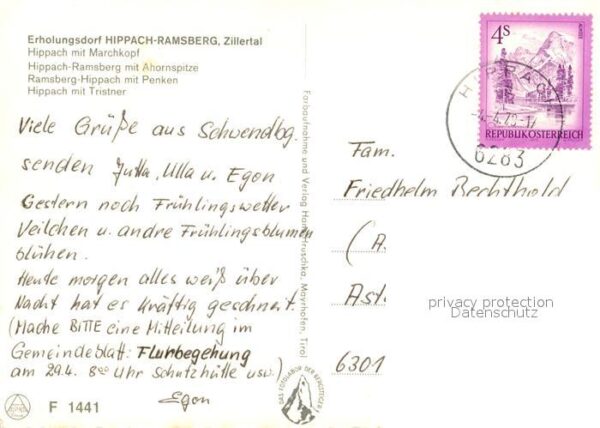 Erholungsdorf HIPPACH-RAMSBERG, Zillertal
Hippach mit Marchkopf
Hippach-Ramsberg mit Ahornspitze
Ramsberg-Hippach mit Penken
Hippach mit Tristner
Viele Grüße aus Schwendbg.
senden Jutta, Ulla u. Egon
Gestern noch Frühlingswetter
Veilchen u. andre Frühlingsblumen
blühen.
Heute morgen alles weiß über
Nacht hat es kräftig geschneit.
(Mache BITTE eine Mitteilung im
Gemeindeblatt: Flurbegehung
am 29.4. 8ºº Uhr Schutzhütte usw.)
Egon
F 1441
Farbaufnahme und Verlag Hruschka, Mayrhofen, Tirol
DAS FOTOLABOR DER BERGSTEIGER
4S
REPUBLIK ÖSTERREICH
HIPPACH
6283
Fam.
Friedhelm Bechthold
(A.
Ast.
6301
privacy protection
Datenschutz